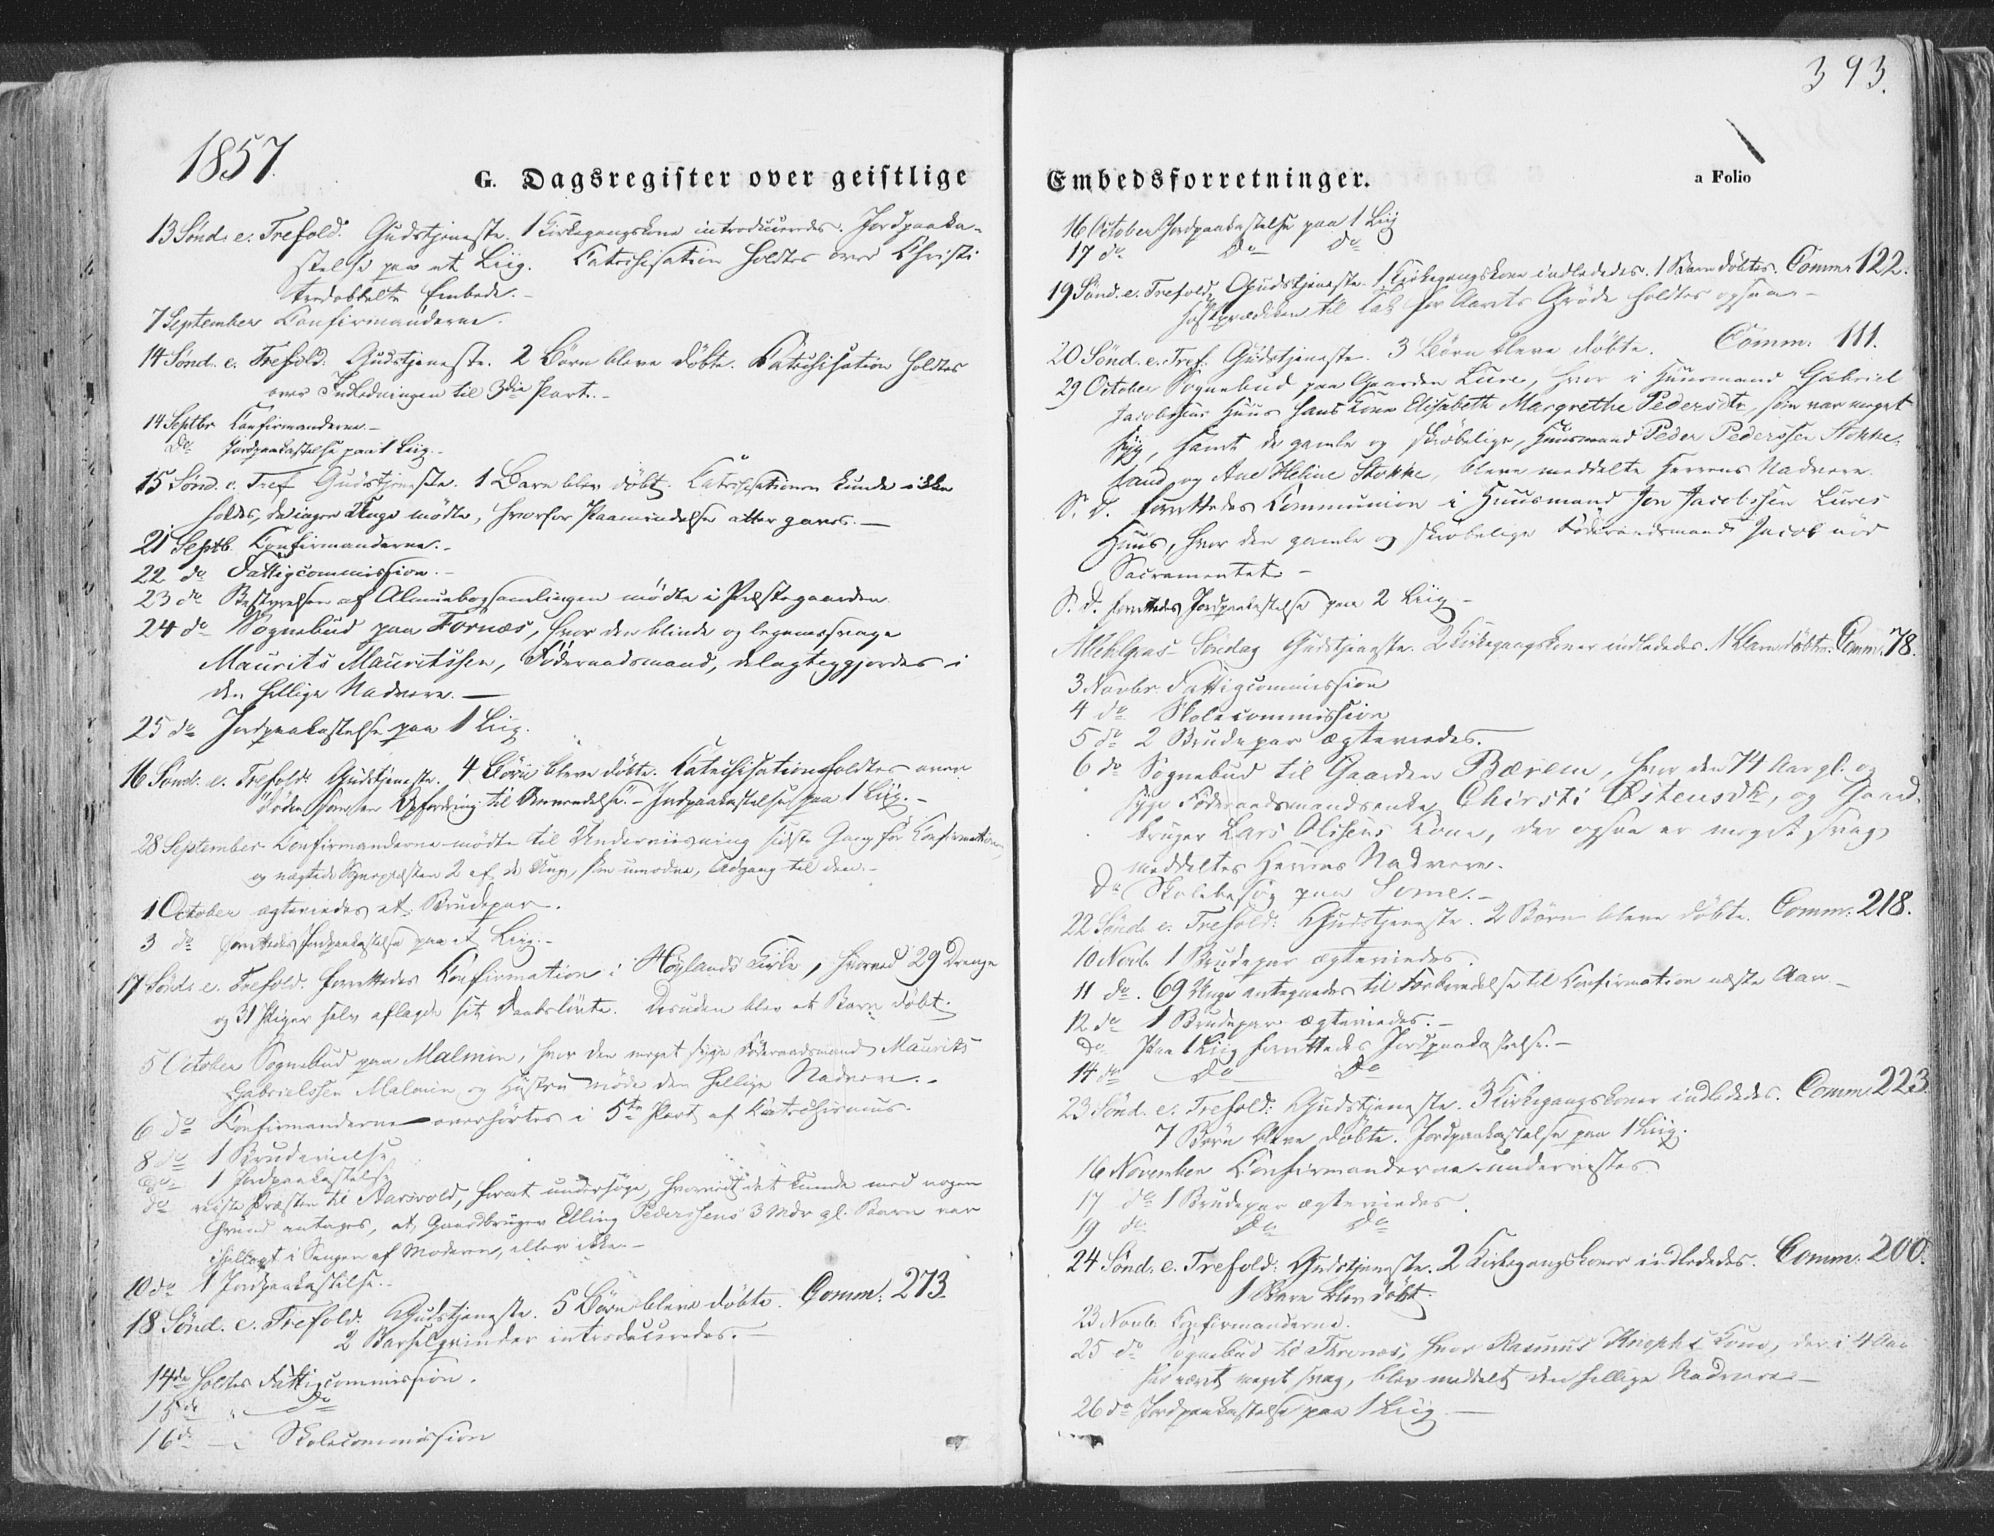 393.
1857.
G. Dagsregister over geistlige
Embedsforretninger.
a Folio
13 Sønd. e. Trefold. Gudstjeneste. 1 Kirkegangskone introduceredes. Jordpaaka-
stelse paa et Liig. Catechisation holdtes over Christi
tredobbelte Embede.-
7 September Confirmanderne.
14 Sønd. e. Trefold. Gudstjeneste. 2 Børn bleve døbte. Katechisation holdtes
over Indledningen til 3die Part.-
14 Septbr Confirmanderne.-
do Jordpaakastelse paa 1 Liig.
15 Sønd. e. Tref Gudstjeneste. 1 Barn blev døbt. Katechisationen kunde ikke
holdes, da ingen Unge mødte, hvorfor Paamindelse atter gaves.-
21 Septb. Confirmanderne.-
22 do Fattigcommission.-
23 do Bestyrelsen af Almuebogsamlingen mødte i Præstegaarden
24 do Sognebud paa Fornæs, hvor den blinde og legemssvage
Maurits Mauritssen, Føderaadsmand, delagtiggjordes i
den hellige Nadvere.-
25 do Jordpaakastelse paa 1 Liig.
16 Sønd. e. Trefold. Gudstjeneste. 4 Børn bleve døbte. Katechisation holdtes over
Døden som en Opfordring til Omvendelse.- Jordpaakastelse paa 1 Liig.-
28 September Confirmanderne mødte til Underviisning sidste Gang før Confirmationen,
og nægtede Sognepræsten 2 af de Unge, som umodne, Adgang til den.-
1 October ægteviedes et Brudepar.
3 do forrettedes Jordpaakastelse paa et Liig.-
17 Sønd. e. Trefold. forrettedes Confirmation i Høylands Kirke, hvorved 29 Drenge
og 31 Piger selv aflagde sit Daabsløfte. Desuden blev et Barn døbt.
5 October Sognebud paa Malmin, hvor den meget syge Føderaadsmand Maurits
Gabrielssen Malmin og Hustru nøde den hellige Nadvere.-
6 do Konfirmanderne overhørtes i 5te Part af Katechismus.
8 do 1 Brudevielse
do 1 Jordpaakastelse
do reiste Præsten til Aarsvold, for at undersøge, hvorvidt det kunde med nogen
Grund antages, at Gaardbruger Elling Pederssens 3 Mdr gl. Barn var
ihjellagt i Sengen af Moderen, eller ikke.-
10 do 1 Jordpaakastelse.-
18 Sønd. e. Trefold. Gudstjeneste. 5 Børn bleve døbte. Comm. 273.
2 Barselqvinder introduceredes.-
14 do holdtes Fattigcommission.
15 do " do
16 do - " Skolecommission
16 October Jordpaakastelse paa 1 Liig
17 do do do
19 Sønd. e. Trefold. Gudstjeneste. 1 Kirkegangskone indlededes. 1 Barn døbtes. Comm. 122.
Høstprædiken til Tak for Aarets Grøde holdtes ogsaa-
20 Sønd. e. Tref. Gudstjeneste. 3 Børn bleve døbte. Comm. 111.
29 October Sognebud paa Gaarden Lure, hvor i Huusmand Gabriel
Jacobsens Huus hans Kone Elisabeth Margrethe Pedersdtr, som var meget
syg, samt de gamle og skrøbelige, Huusmand Peder Pederssen Stokke-
land og Ane Heline Stokke, bleve meddelte Herrens Nadvere.
S. D. forrettedes Communion i Huusmand Jon Jacobssen Lures
Huus, hvor den gamle og skrøbelige Føderaadsmand Jacob nød
Sacramentet.-
S. D. forrettedes Jordpaakastelse paa 2 Liig-
Allehlgens Søndag Gudstjeneste. 2 Kirkegangskoner indlededes. 1 Barn døbt. Comm. 78.
3 Novbr. Fattigcommission
4 do Skolecommission
5 do 2 Brudepar ægteviedes.-
6 do Sognebud til Gaarden Bærem, hvor den 74 Aar gl. og
syge Føderaadsmandsenke Chirsti Østensdtr, og Gaard-
bruger Lars Olssens Kone, der ogsaa er meget svag,
meddeltes Herrens Nadvere.
do Skolebesøg paa Somе.-
22 Sønd. e. Trefold: Gudstjeneste. 2 Børn bleve døbte. Comm. 218.
10 Novb. 1 Brudepar ægteviedes.
11 do. 69 Unge antegnedes til Forberedelse til Confirmation næste Aar-
12 do 1 Brudepar ægteviedes.-
do Paa 1 Liig forrettedes Jordpaakastelse.-
14 do do do
23 Sønd. e. Trefold: Gudstjeneste. 3 Kirkegangskoner indlededes. Comm. 223
7 Børn bleve døbte. Jordpaakastelse paa 1 Liig.
16 November Confirmanderne undervistes
17 do 1 Brudepar ægteviedes.
19 do do do
24 Sønd. e. Trefold: Gudstjeneste. 2 Kirkegangskoner indlededes. Comm. 200.
1 Barn blev døbt.
23 Novb. Confirmanderne.
25 do Sognebud til Thronæs, hvor Rasmus Knophs Kone, der i 4 Aar
har været meget svag, blev meddelt den hellige Nadvere-
26 do Jordpaakastelse paa 1 Liig-